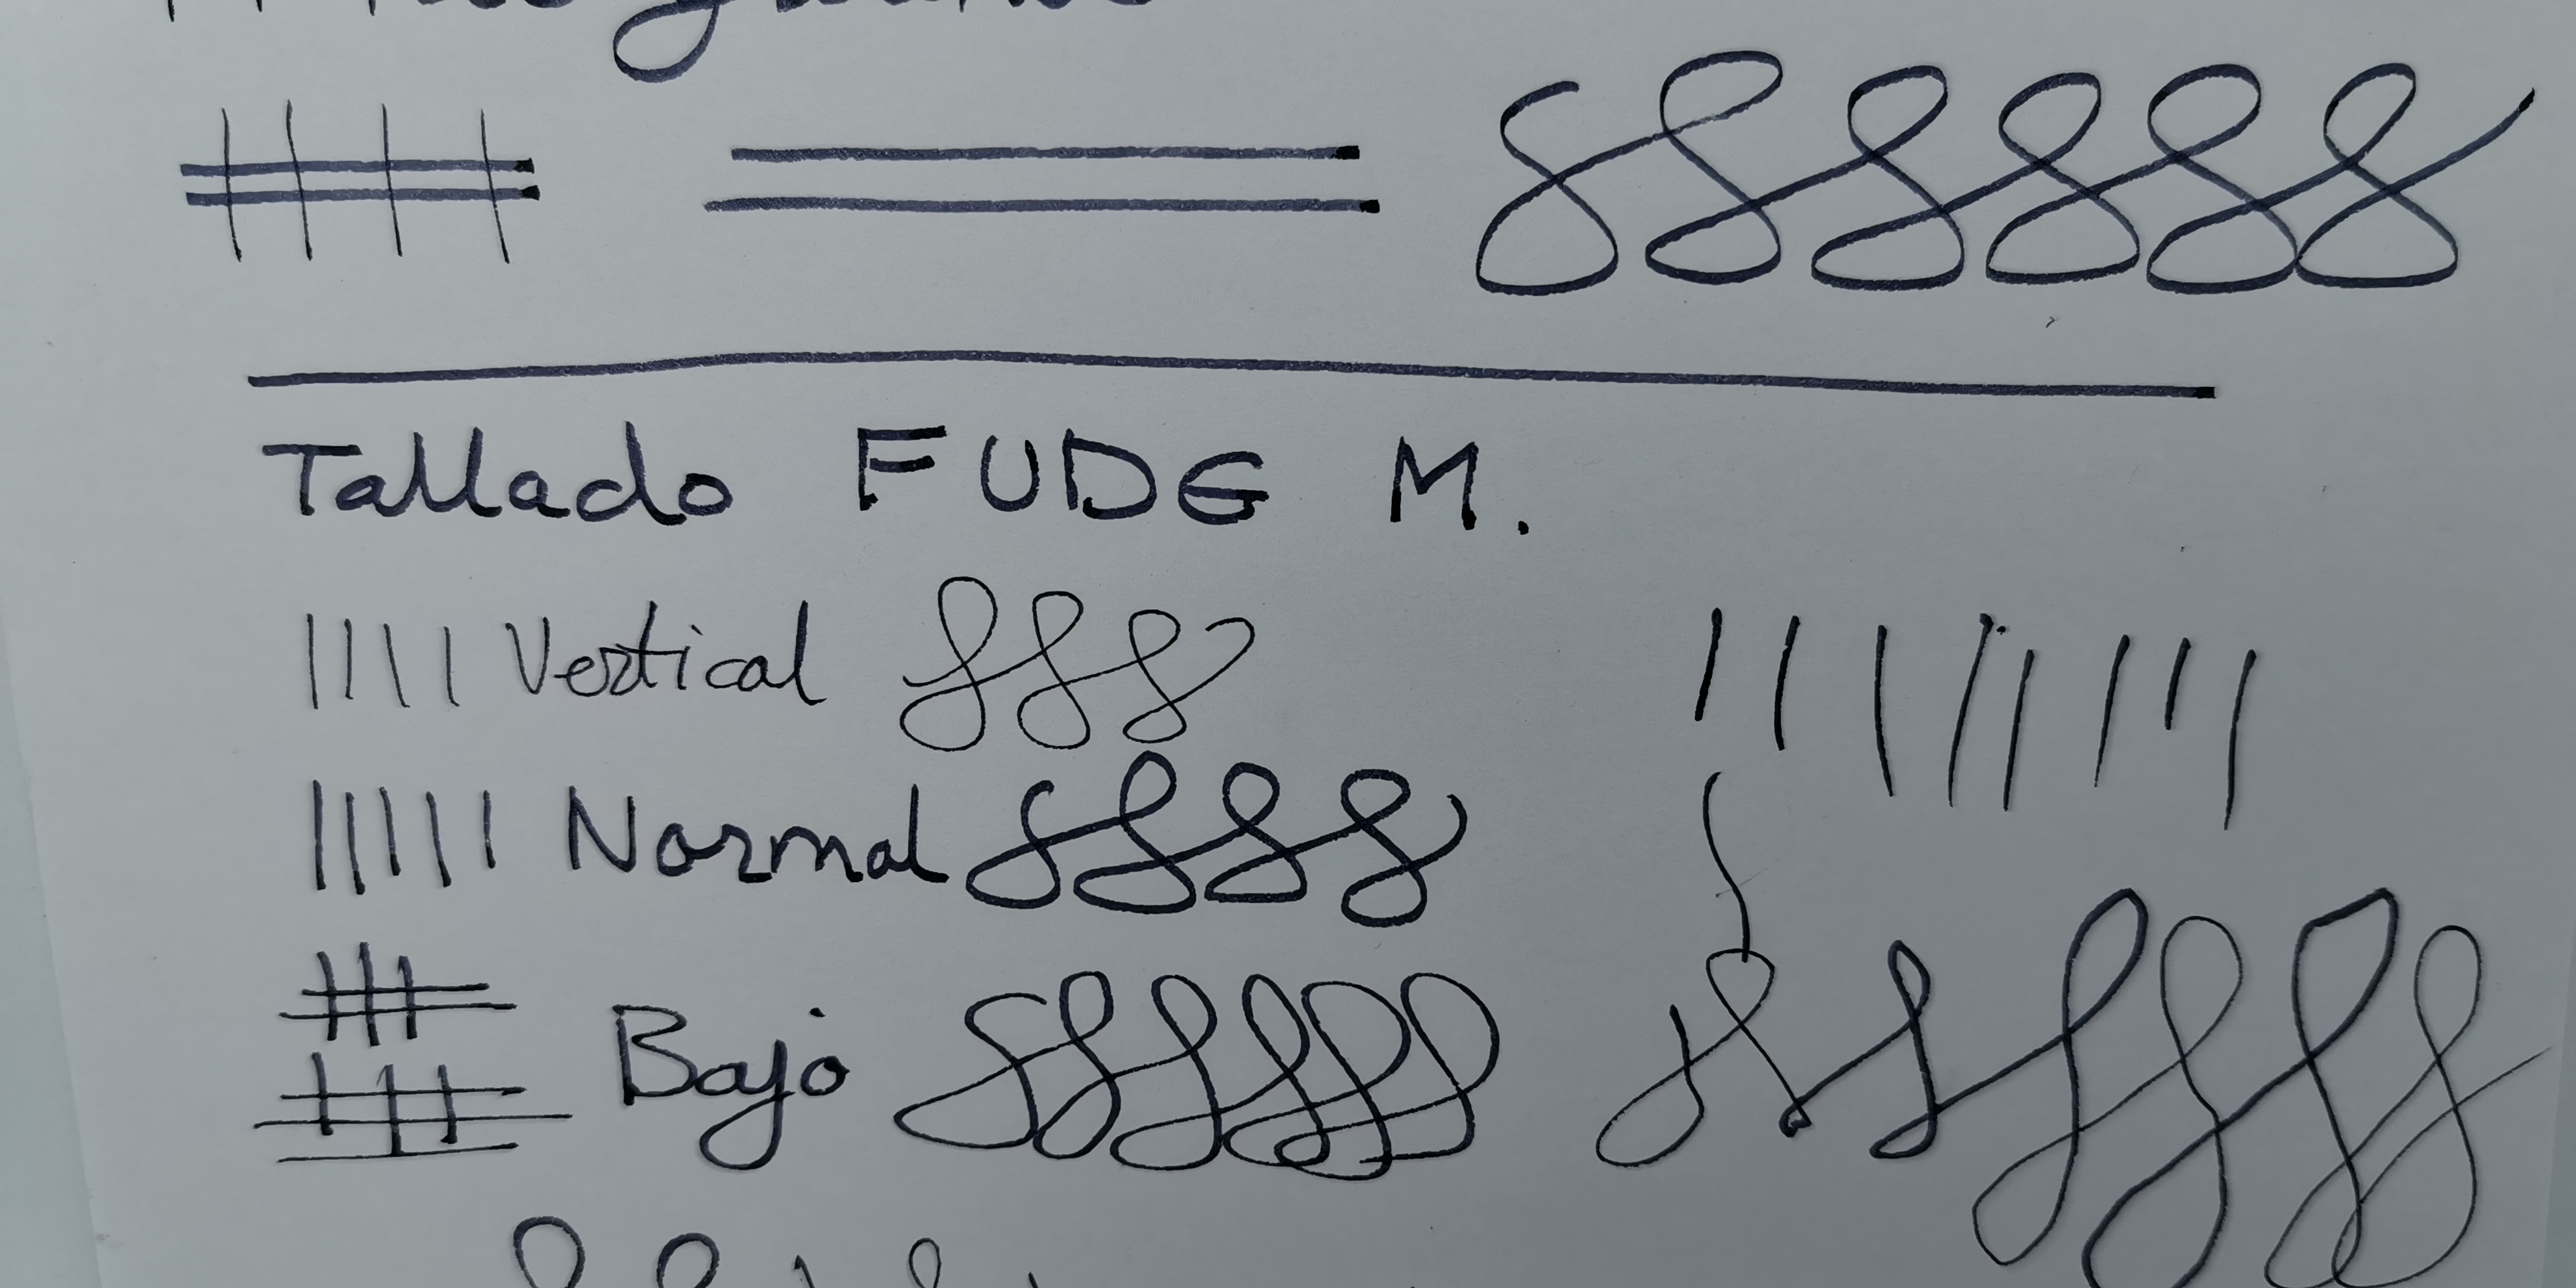 Tallado FUDG M.
Vertical
Normal
Bajo